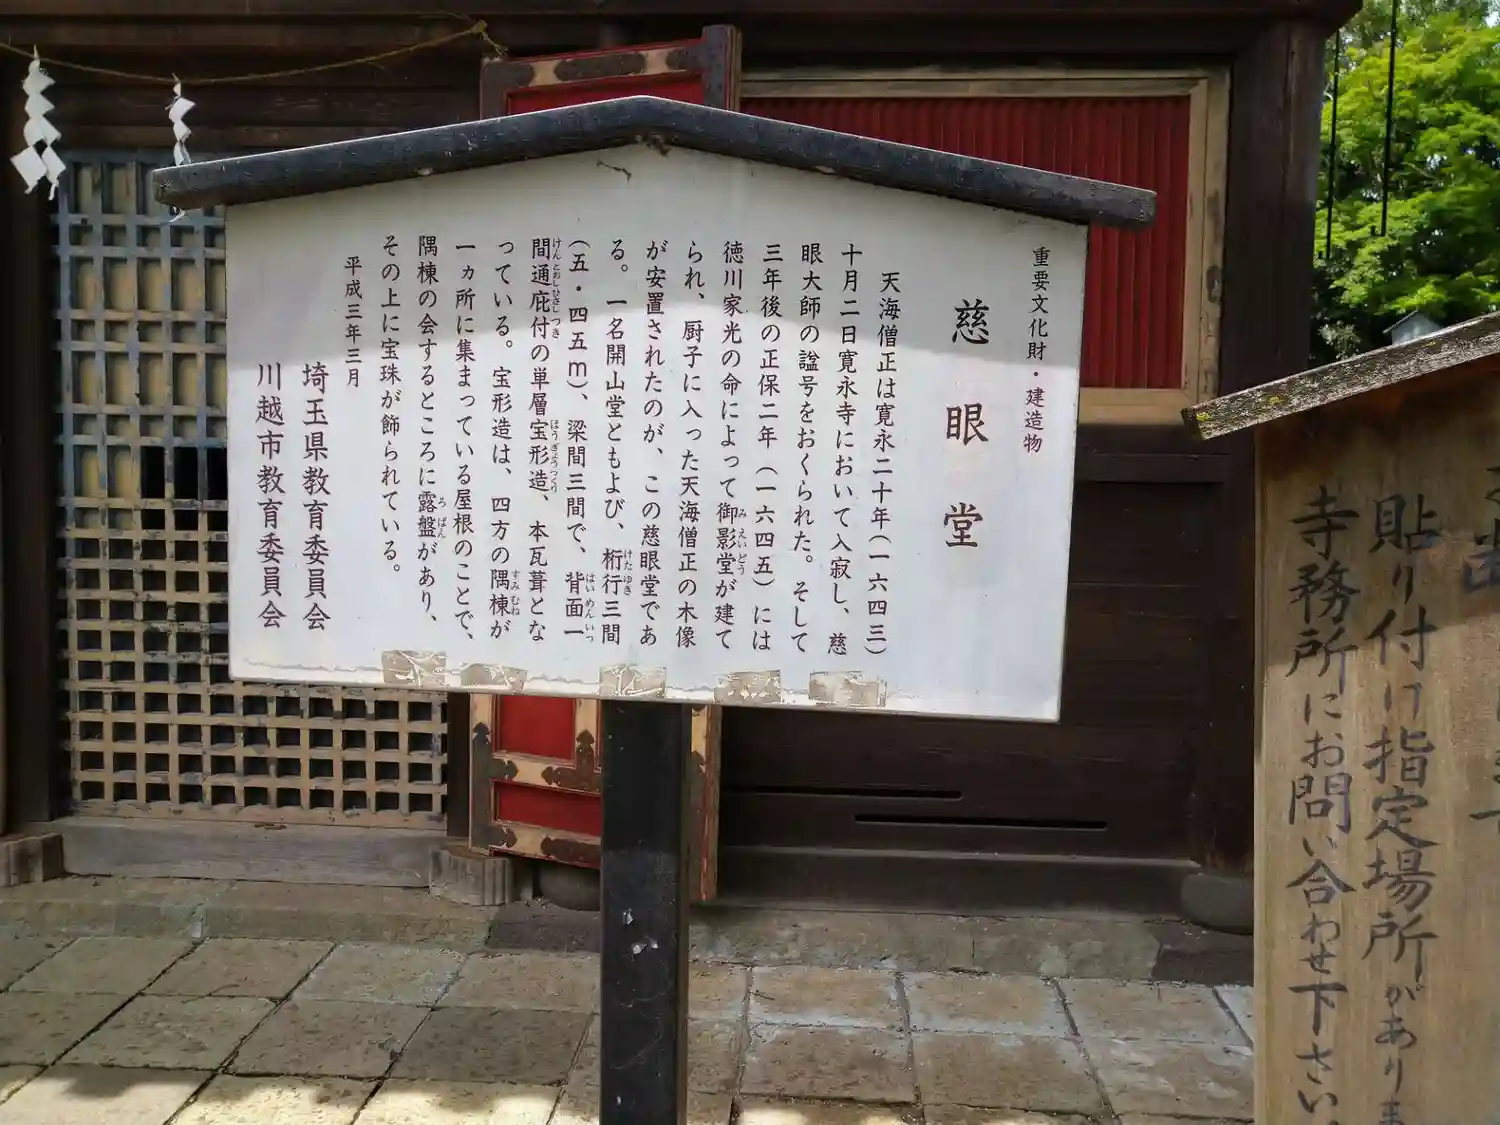 重要文化財・建造物
慈眼堂
天海僧正は寛永二十年(一六四三)
十月二日寛永寺において入寂し、慈
眼大師の諡号をおくられた。そして
三年後の正保二年(一六四五)には
徳川家光の命によって御影堂が建て
られ、厨子に入った天海僧正の木像
が安置されたのが、この慈眼堂であ
る。一名開山堂ともよび、桁行三間
(五・四五m)、梁間三間で、背面一
間通庇付の単層宝形造、本瓦葺とな
っている。宝形造は、四方の隅棟が
一ヵ所に集まっている屋根のことで、
隅棟の会するところに露盤があり、
その上に宝珠が飾られている。
平成三年三月
埼玉県教育委員会
川越市教育委員会
貼り付け指定場所がありま
寺務所にお問い合わせ下さい